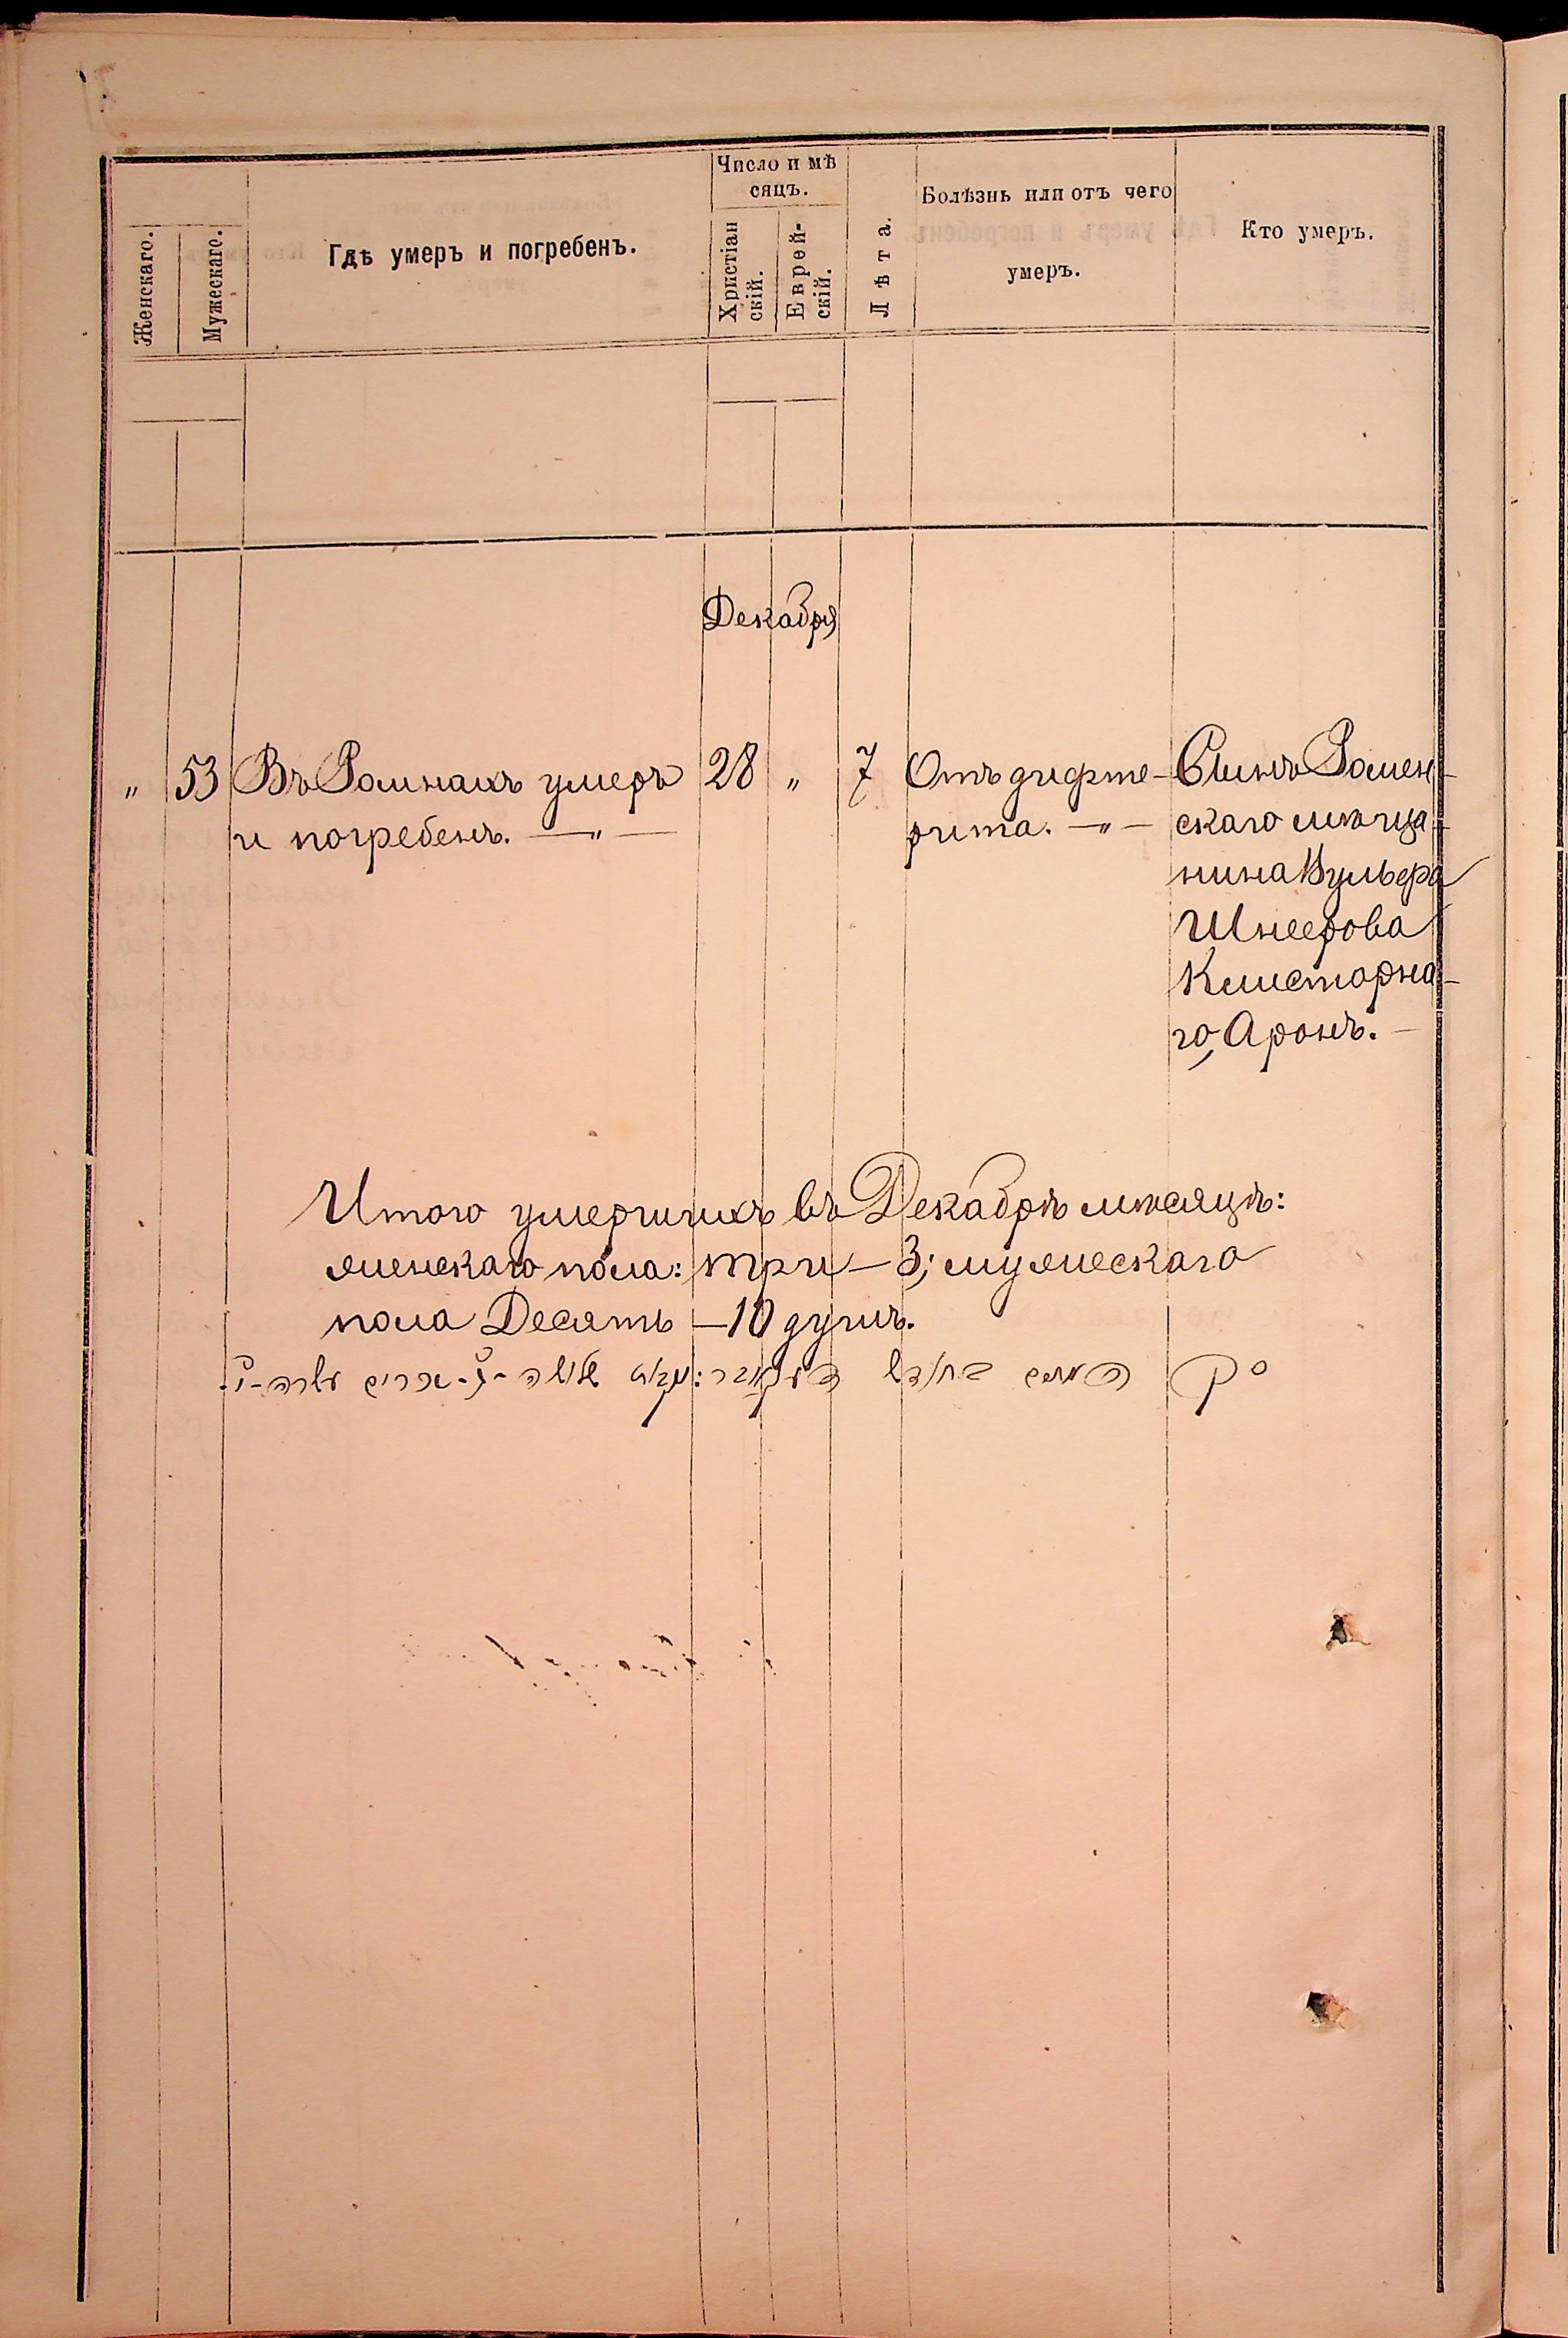 Женскаго.
Мужескаго.
Гдѣ умеръ и погребенъ.
Число и мѣ
сяцъ.
Христіан
скій.
Еврей-
скій.
Лѣта.
Болѣзнь или отъ чего
умеръ.
Кто умеръ.
Декабря
" 53 Въ Ромнахъ умеръ 28 " 7 Отъ дифте- Сынъ Ромен-
и погребенъ. —"— рита. —"— скаго мѣща-
нина
Шнеерова
го, Аронъ. —
Итого умершихъ въ Декабрѣ мѣсяцѣ:
женскаго пола: три — 3; мужескаго
пола Десять — 10 душъ.